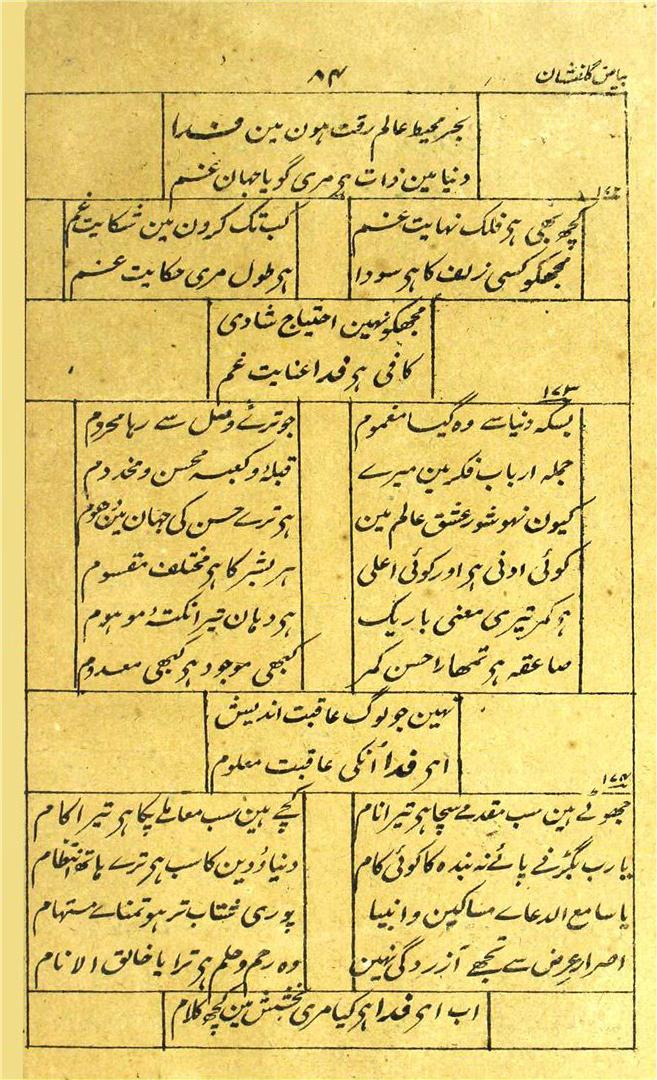 بیاض گلفشان
۸۴
بحر محیط عالم رقت ہون مین فدا
دنیا مین ذات ہی مری گویا جہان غم
۱۷۲
کچھ بھی ہی فلک نہایت غم کب تک کرون مین شکایت غم
مجھکو کسی زلف کا ہی سودا ہی طول مری حکایت غم
مجھکو نہین احتیاج شادی
کافی ہی فدا عنایت غم
۱۷۳
بسکہ دنیا سے وہ گیا مغموم جو ترے وصل سے رہا محروم
جملہ ارباب فکر مین میرے قبلہ و کعبہ محسن و مخدوم
کیون نہو شور عشق عالم مین ہی ترے حسن کی جہان مین دھوم
کوئی ادنی ہی اور کوئی اعلی ہر بشر کا ہی مختلف مقسوم
ہی کمر تیری معنی باریک ہی دہان تیرا نکتۂ موہوم
صاعقہ ہی تمھارا حسن کمر کبھی موجود ہی کبھی معدوم
نہین جو لوگ عاقبت اندیش
ای فدا اُنکی عاقبت معلوم
۱۷۴
جھوٹے ہین سب مقدمے سچا ہی تیرا نام کچے ہین سب معاملے پکا ہی تیرا کام
یا رب بگڑنے پائے نہ بندہ کا کوئی کام دنیا و دین کا سب ہی ترے ہاتھ انتظام
یا سامع الدعاے مساکین و انبیا پوری شتاب تر ہو تمناے مستہام
اصرار عرض سے تجھے آزردگی نہین وہ رحم و حلم ہی ترا یا خالق الانام
اب ای فدا ہی کیا مری بخشش مین کچھ کلام